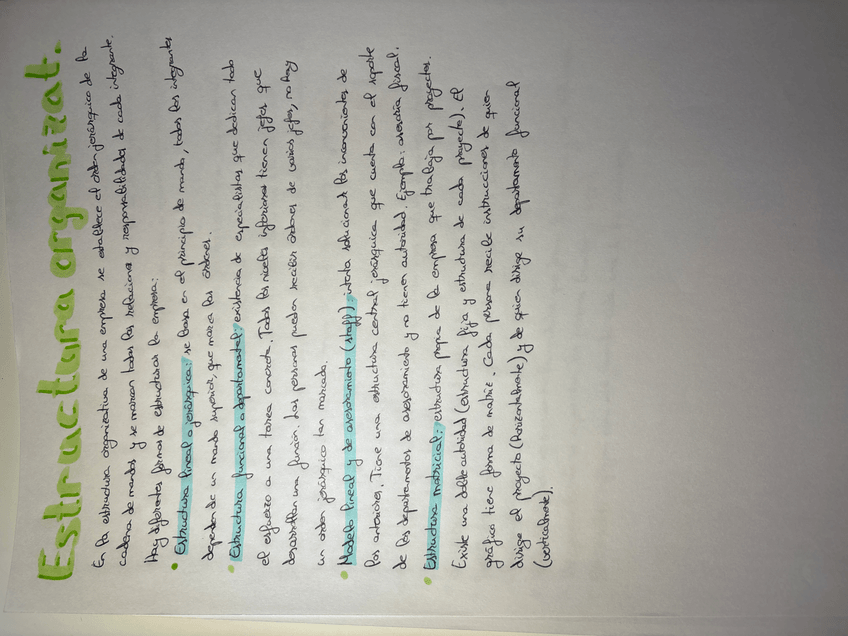 Estructura organizat.
En la estructura organizativa de una empresa se establece el orden jerárquico de la
cadena de mandos y se marcan todas las relaciones y responsabilidades de cada integrante.
Hay diferentes formas de estructurar la empresa:
• Estructura lineal o jerárquica: se basa en el principio de mando, todos los integrantes
dependen de un mando superior, que marca las órdenes.
• Estructura funcional o departamental: existencia de especialistas que dedican todo
el esfuerzo a una tarea concreta. Todos los niveles inferiores tienen jefes que
desarrollan una función. Las personas pueden recibir órdenes de varios jefes, no hay
un orden jerárquico tan marcado.
• Modelo lineal y de asesoramiento (staff): intenta solucionar los inconvenientes de
los anteriores. Tiene una estructura central jerárquica que cuenta con el soporte
de los departamentos de asesoramiento y no tienen autoridad. Ejemplo: asesoría fiscal.
• Estructura matricial: estructura propia de la empresa que trabaja por proyectos.
Existe una doble autoridad (estructura fija y estructura de cada proyecto). El
gráfico tiene forma de matriz. Cada persona recibe instrucciones de quien
dirige el proyecto (horizontalmente) y de quien dirige su departamento funcional
(verticalmente).